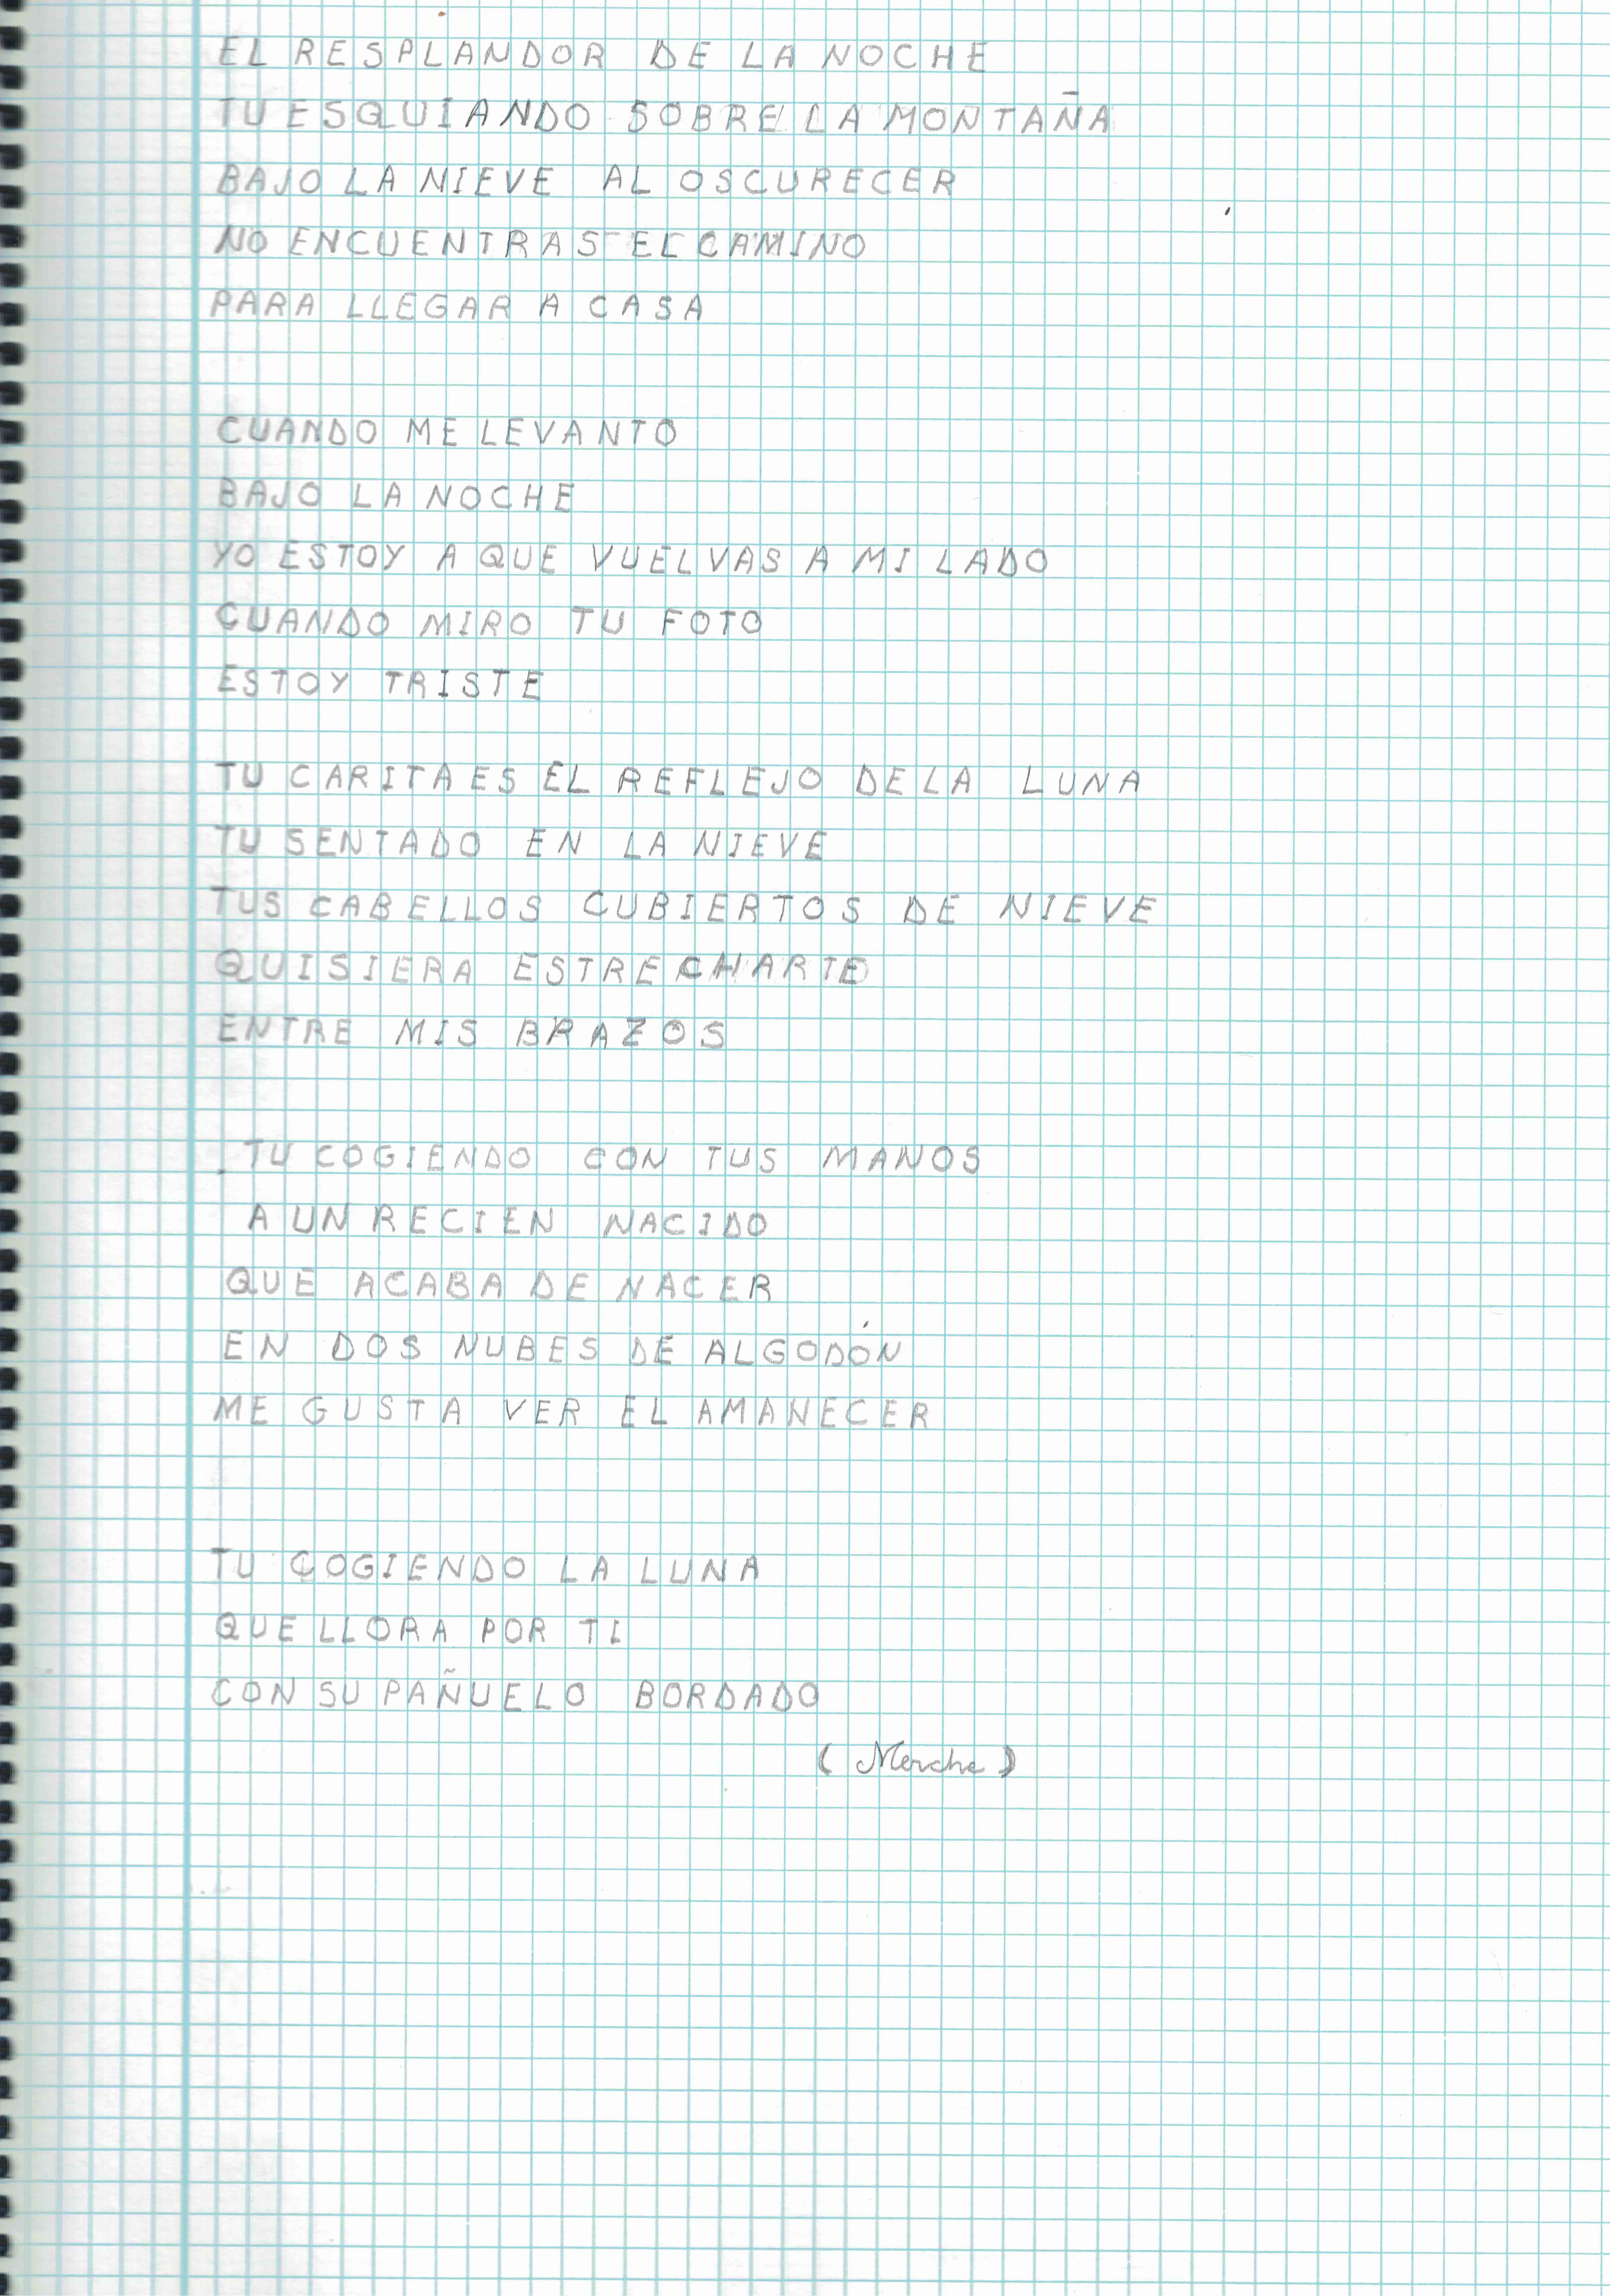 EL RESPLANDOR DE LA NOCHE
TU ESQUIANDO SOBRE LA MONTAÑA
BAJO LA NIEVE AL OSCURECER
NO ENCUENTRAS EL CAMINO
PARA LLEGAR A CASA
CUANDO ME LEVANTO
BAJO LA NOCHE
YO ESTOY A QUE VUELVAS A MI LADO
CUANDO MIRO TU FOTO
ESTOY TRISTE
TU CARITA ES EL REFLEJO DE LA LUNA
TU SENTADO EN LA NIEVE
TUS CABELLOS CUBIERTOS DE NIEVE
QUISIERA ESTRECHARTE
ENTRE MIS BRAZOS
TU COGIENDO CON TUS MANOS
A UN RECIEN NACIDO
QUE ACABA DE NACER
EN DOS NUBES DE ALGODÓN
ME GUSTA VER EL AMANECER
TU COGIENDO LA LUNA
QUE LLORA POR TI
CON SU PAÑUELO BORDADO
(Merche)